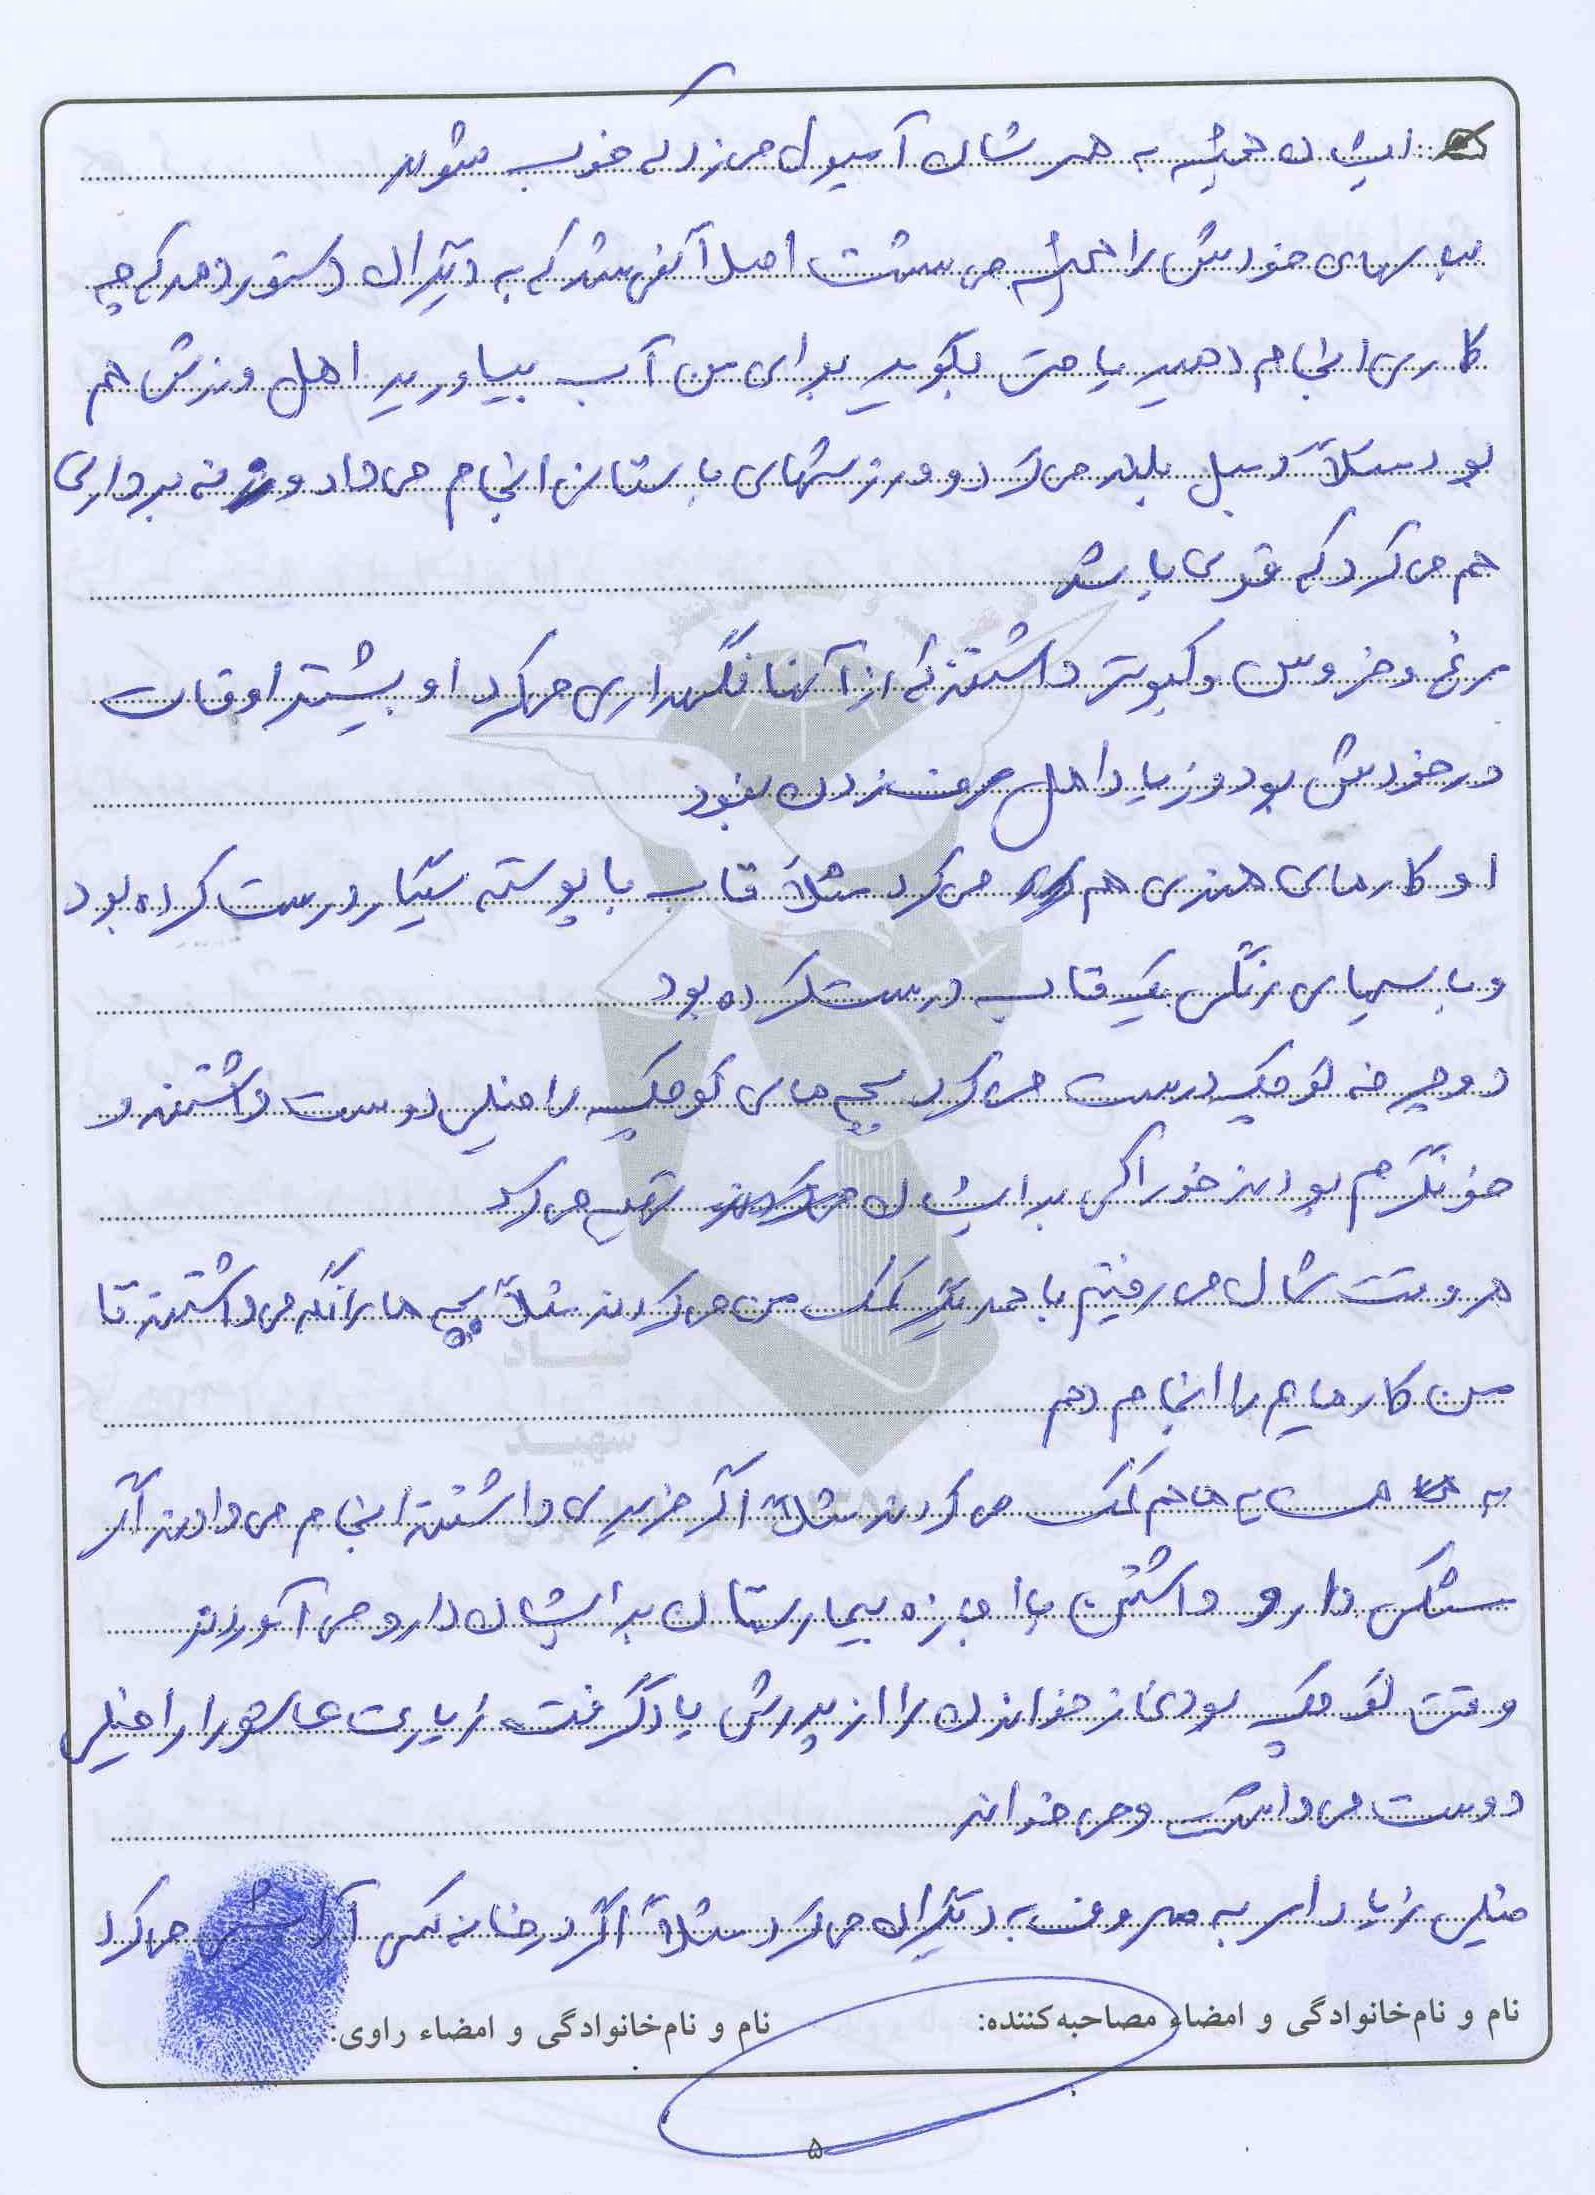 ایشان همیشه به همرشان آمپول می‌زد که خوب شوند
لباسهای خودش را همیشه می‌شست اصلاً آنی نبود که به دیگران دستور دهد که چه
کاری انجام دهید یا حتی بگوید برای من آب بیاورید اهل ورزش هم
بود مثلاً دمبل بلند می‌کرد و ورزشهای باستانی انجام می‌داد وزنه برداری
هم می‌کرد که قوی باشد
مرغ و خروس و کبوتر داشتند که از آنها نگهداری می‌کرد او بیشتر اوقات
در خودش بود و زیاد اهل حرف زدن نبود
او کارهای هنری هم می‌کرد مثلاً قاب با پوسته سیگار درست کرده بود
و با سیمهای رنگی یک قاب درست کرده بود
دوچرخه کوچک درست می‌کرد بچه‌های کوچک را خیلی دوست داشتند و
خونگرم بودند خوراکی برایشان تهیه می‌کرد
هر وقت شمال می‌رفتیم با همدیگر کمک من می‌کردند مثلاً بچه‌ها را نگه می‌داشتند تا
من کارهایم را انجام دهم
به همسایه‌ها هم کمک می‌کردند مثلاً اگر خریدی داشتند انجام می‌دادند اگر
مشکل دارو داشتن با اجازه بیمارستان برایشان دارو می‌آوردند
وقتی کوچک بود نماز خواندن را از پدرش یاد گرفت، زیارت عاشورا را خیلی
دوست می‌داشت و می‌خواند
خیلی زیاد امر به معروف به دیگران می‌کرد مثلاً اگر در خانه کسی آرایش می‌کرد
نام و نام‌خانوادگی و امضاء مصاحبه‌کننده: نام و نام‌خانوادگی و امضاء راوی:
۵